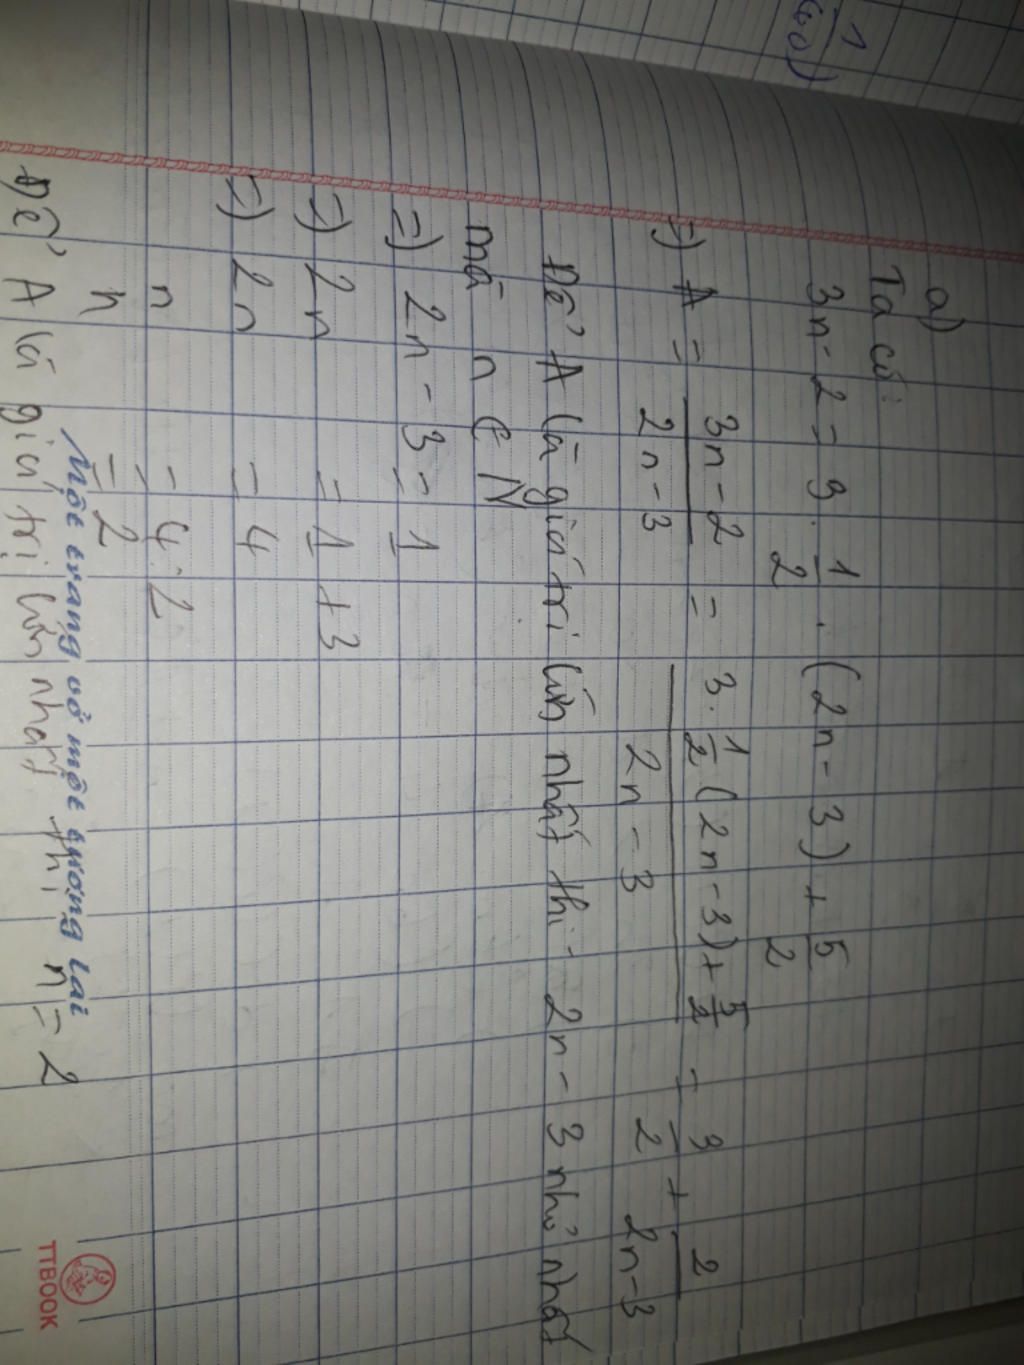 1
a)
Ta có:
3n - 2 = 3 . 1/2 . (2n - 3) + 5/2
=) A = 3n - 2 / 2n - 3 = 3. 1/2 (2n - 3) + 5/2 / 2n - 3 = 3/2 + 2/2n - 3
Để A là giá trị lớn nhất thì 2n - 3 nhỏ nhất
mà n ∈ N
=) 2n - 3 = 1
=) 2n = 1 + 3
=) 2n = 4
n = 4 : 2
n = 2
Một trang vở một tương lai
Để A là giá trị lớn nhất thì n = 2
TTBOOK